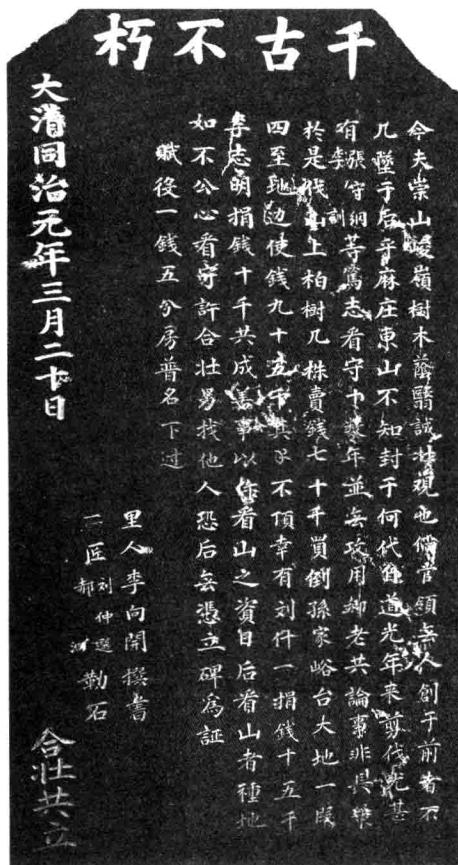 千古不朽
今夫崇山峻嶺樹木蔭翳誠壯覌也倘管領無人創于前者不
几墜于后乎麻庄東山不知封于何代自道光年来剪伐尤甚
有張守綱李訓等篤志看守十数年並無攻用鄉老共論事非具樂
於是伐山上柏樹几株賣錢七十千買到孫家峪台大地一段
四至地边使錢九十五千其不頂幸有刘仟一捐錢十五千
李志明捐錢十千共成善事以作看山之資日后看山者種地
如不公心看守許合壯另找他人恐后無憑立碑爲証
賦役一錢五分房普名下过
里人李向開撰書
二匠刘仲選郝河勒石
合壯共立
大清同治元年三月二十日